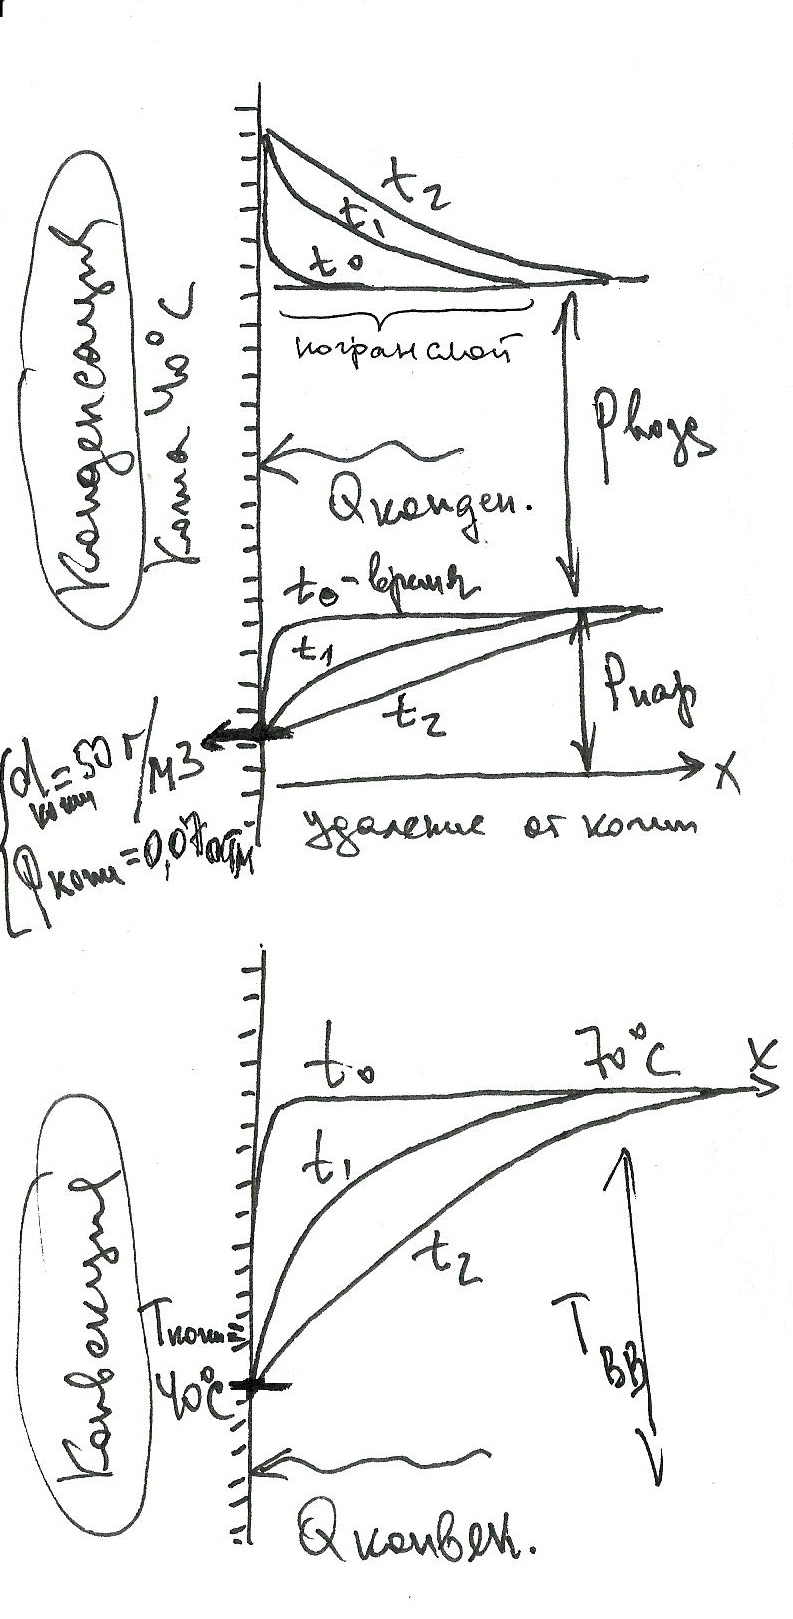 Конденсация
Кожа 40°C
t2
t1
t0
погранслой
Pвозд
Qконден.
t0-время
t1
t2
Pпар
dкожи=50 г/м3
Pкожи=0,07атм
X
удаление от кожи
Конвекция
t0
70°C
X
t1
t2
Tкожи=
40°C
TВВ
Qконвек.